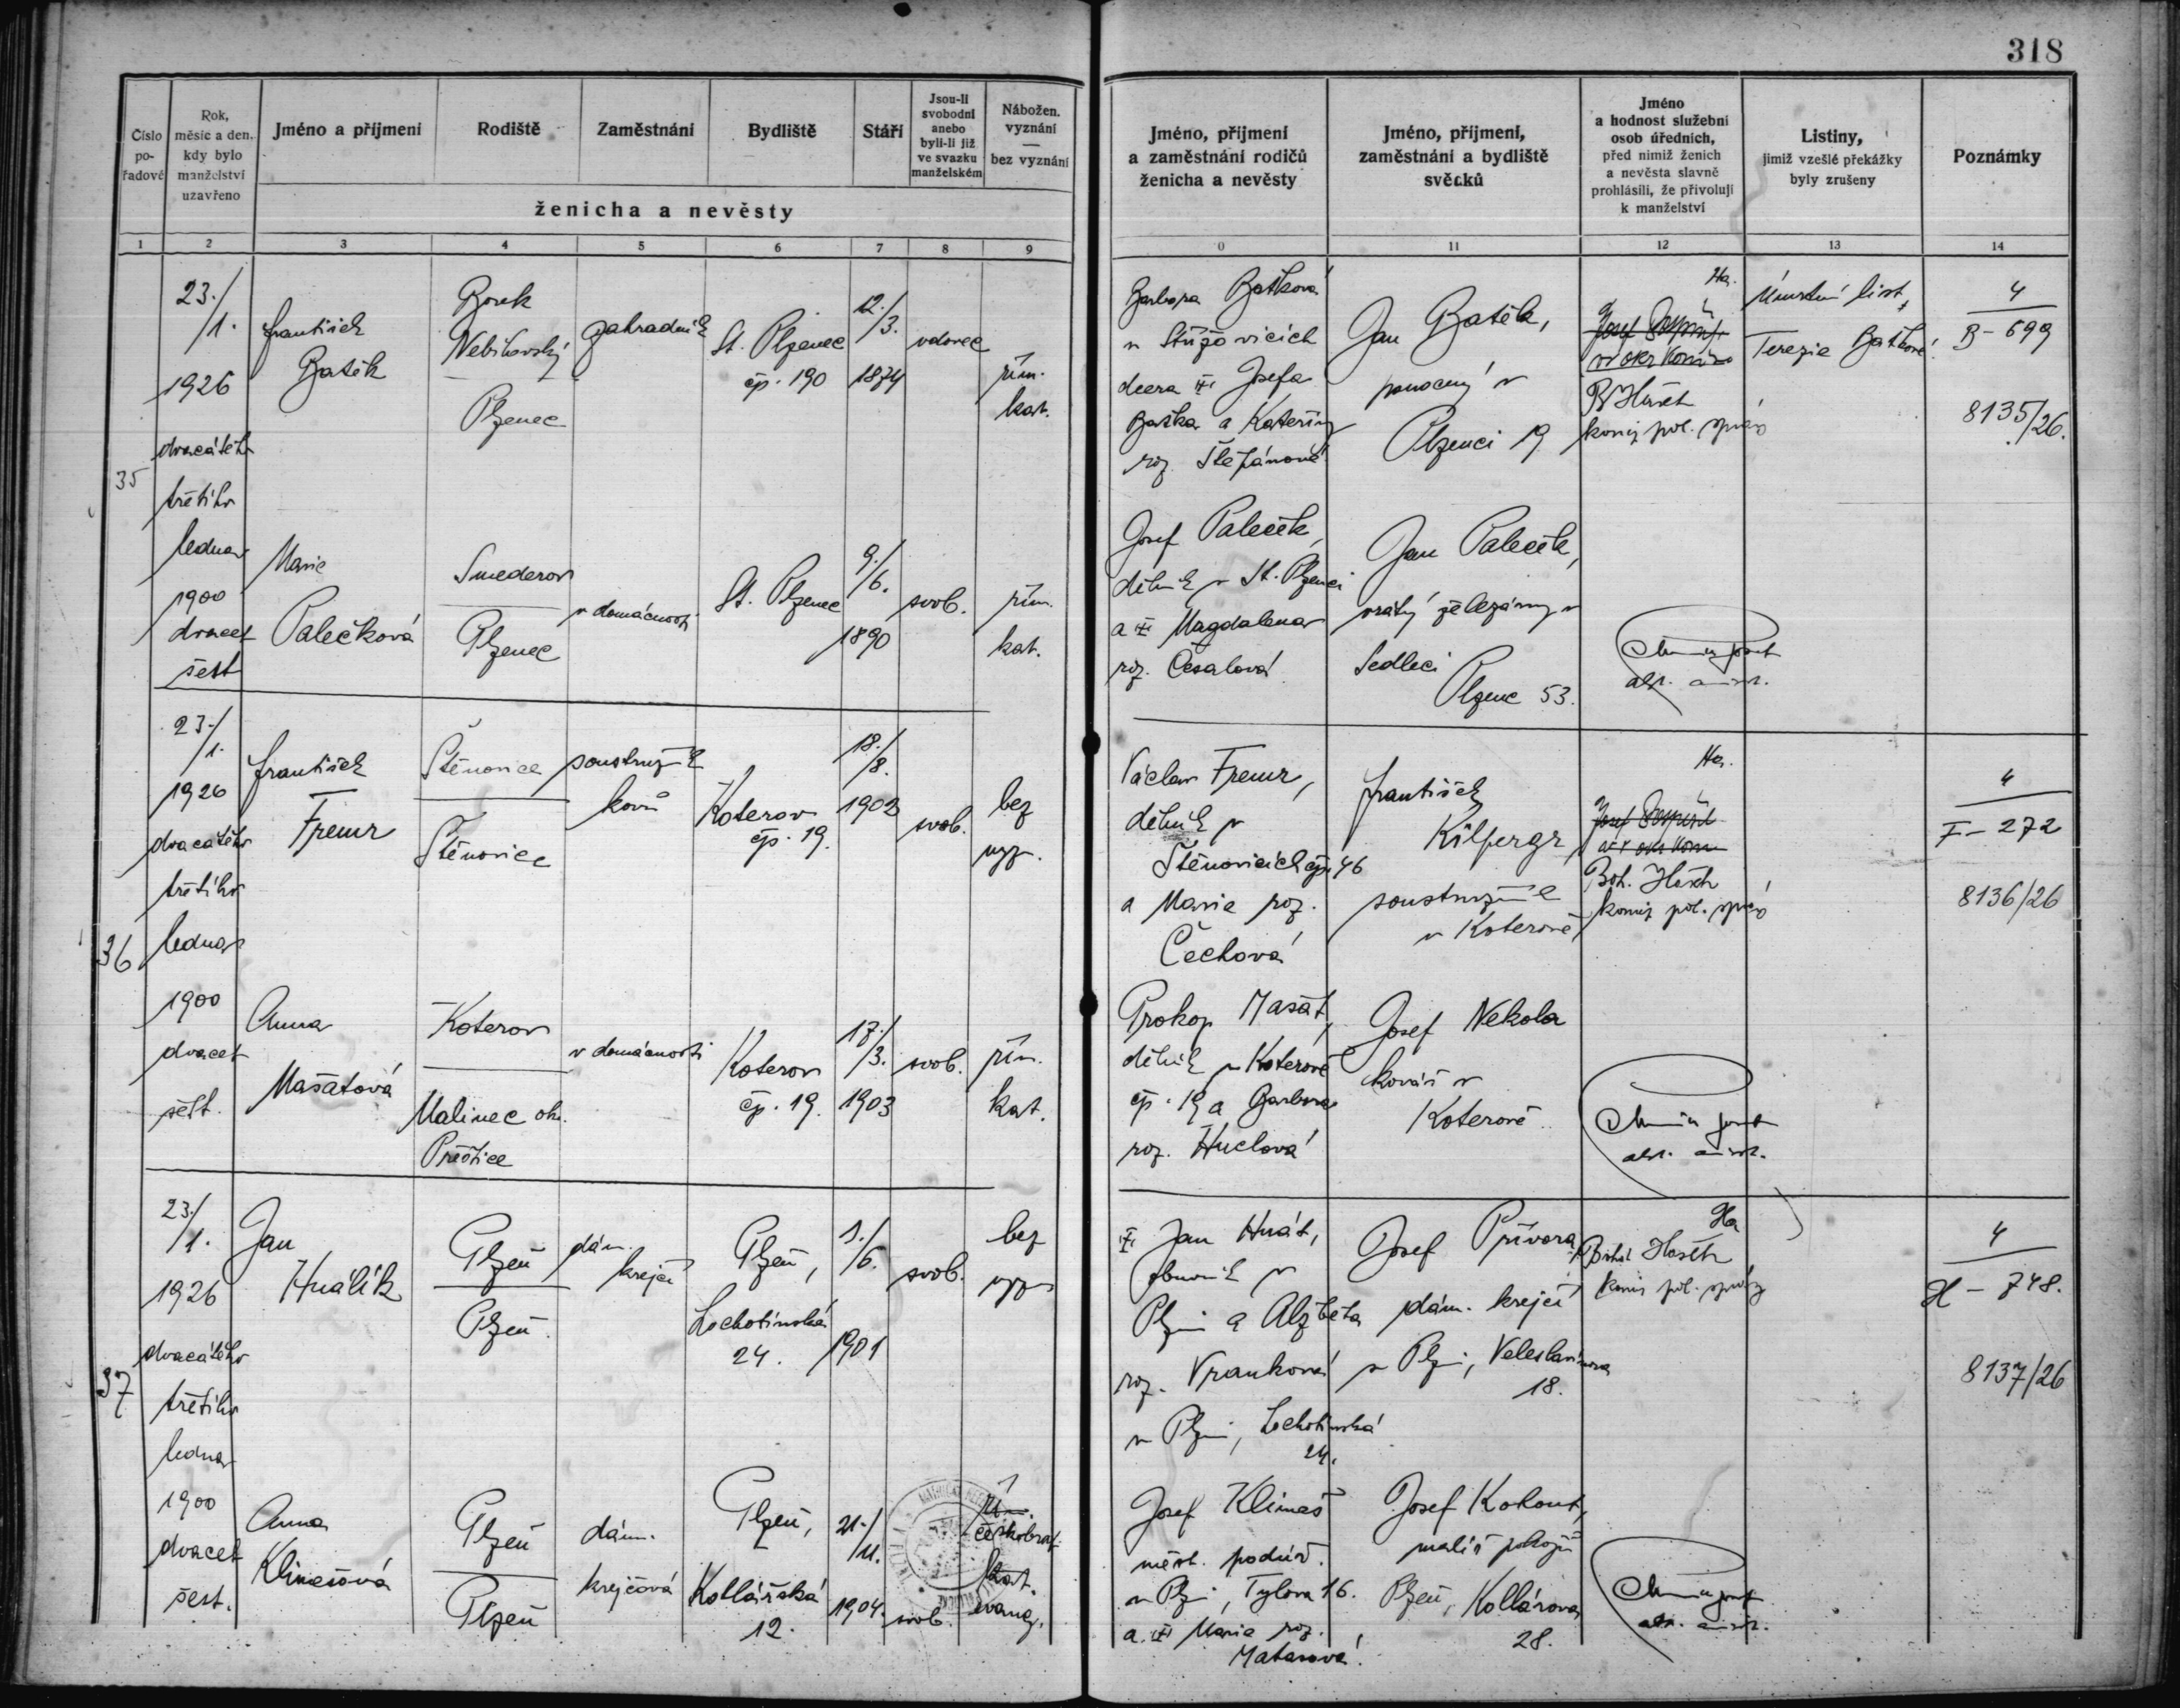 318
Číslo po-řadové
Rok, měsíc a den, kdy bylo manželství uzavřeno
Jméno a příjmení
Rodiště
Zaměstnání
Bydliště
Stáří
Jsou-li svobodni anebo byli-li již ve svazku manželském
Nábožen. vyznání — bez vyznání
ženicha a nevěsty
Jméno, příjmení a zaměstnání rodičů ženicha a nevěsty
Jméno, příjmení, zaměstnání a bydliště svědků
Jméno a hodnost služební osob úředních, před nimiž ženich a nevěsta slavně prohlásili, že přivolují k manželství
Listiny, jimiž vzešlé překážky byly zrušeny
Poznámky
1 2 3 4 5 6 7 8 9
0 11 12 13 14
35
23./1.
1926
dvacátého
třetího
ledna
1900
dvacet
šest
František
Baťěk
Borek
Nebílovský
Plzenec
zahradník
St. Plzenec
čp. 190
12./3.
1874
vdovec
řím.
kat.
Barbora Baťková
v Střížovicích
dcera Josefa
Baťka a Kateřiny
roz. Štěpánové
Jan Baťěk,
ponocný v
Plzenci 19
Josef
komis. pol. správ
Úmrtní list
Terezie Baťkové
4
B-699
8135/26.
Marie
Palečková
Smederov
Plzenec
v domácnosti
St. Plzenec
9./6.
1890
svob.
řím.
kat.
Josef Paleček,
dělník v St. Plzenci
a Magdalena
roz. Česalová
Jan Paleček,
vrátný železárny v
Sedlci
Plzenec 53.
36
23./1.
1926
dvacátého
třetího
ledna
1900
dvacet
šest.
František
Fremr
Štěnovice
Štěnovice
soustružník
kovů
Koterov
čp. 19.
18./8.
1902
svob.
bez
vyzn.
Václav Fremr,
dělník v
Štěnovicích čp. 46
a Marie roz.
Čechová
František
Kilpergr,
soustružník
v Koterově
Josef
Boh.
komis. pol. správ
4
F-272
8136/26
Anna
Mašatová
Koterov
Malinec okr.
Přeštice
v domácnosti
Koterov
čp. 19.
17./3.
1903
svob.
řím.
kat.
Prokop Mašat,
dělník v Koterově
čp. 19 a Barbora
roz. Huclová
Josef Nekola
kovář v
Koterově
37
23./1.
1926
dvacátého
třetího
ledna
1900
dvacet
šest.
Jan
Huálík
Plzeň
Plzeň
dám.
krejčí
Plzeň,
Lochotínská
24.
1./6.
1901
svob.
bez
vyzn
Jan Huát,
obuvník v
Plzni a Alžběta
roz. Vranková
v Plzni, Lochotínská
24.
Josef Přívora
dám. krejčí
v Plzni, Veleslavínova
18.
komis pol. správy
4
H-748.
8137/26
Anna
Klimešová
Plzeň
Plzeň
dám.
krejčová
Plzeň,
Kollárská
12.
21./11.
1904.
svob.
českobrat.
kat.
evang.
Josef Klimeš
měst. podúř.
v Plzni, Tylova 16.
a Marie roz.
Matasová.
Josef Kohout,
malíř pokojů
Plzeň, Kollárova
28.